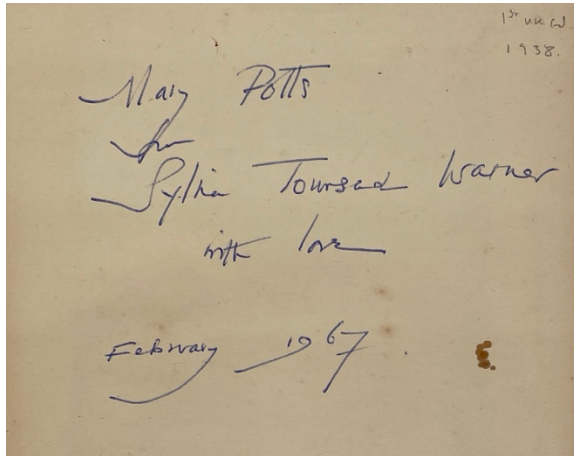 1st UK ed.
1938.
Mary Potts
from
Sylvia Townsend Warner
with love
February 1967.